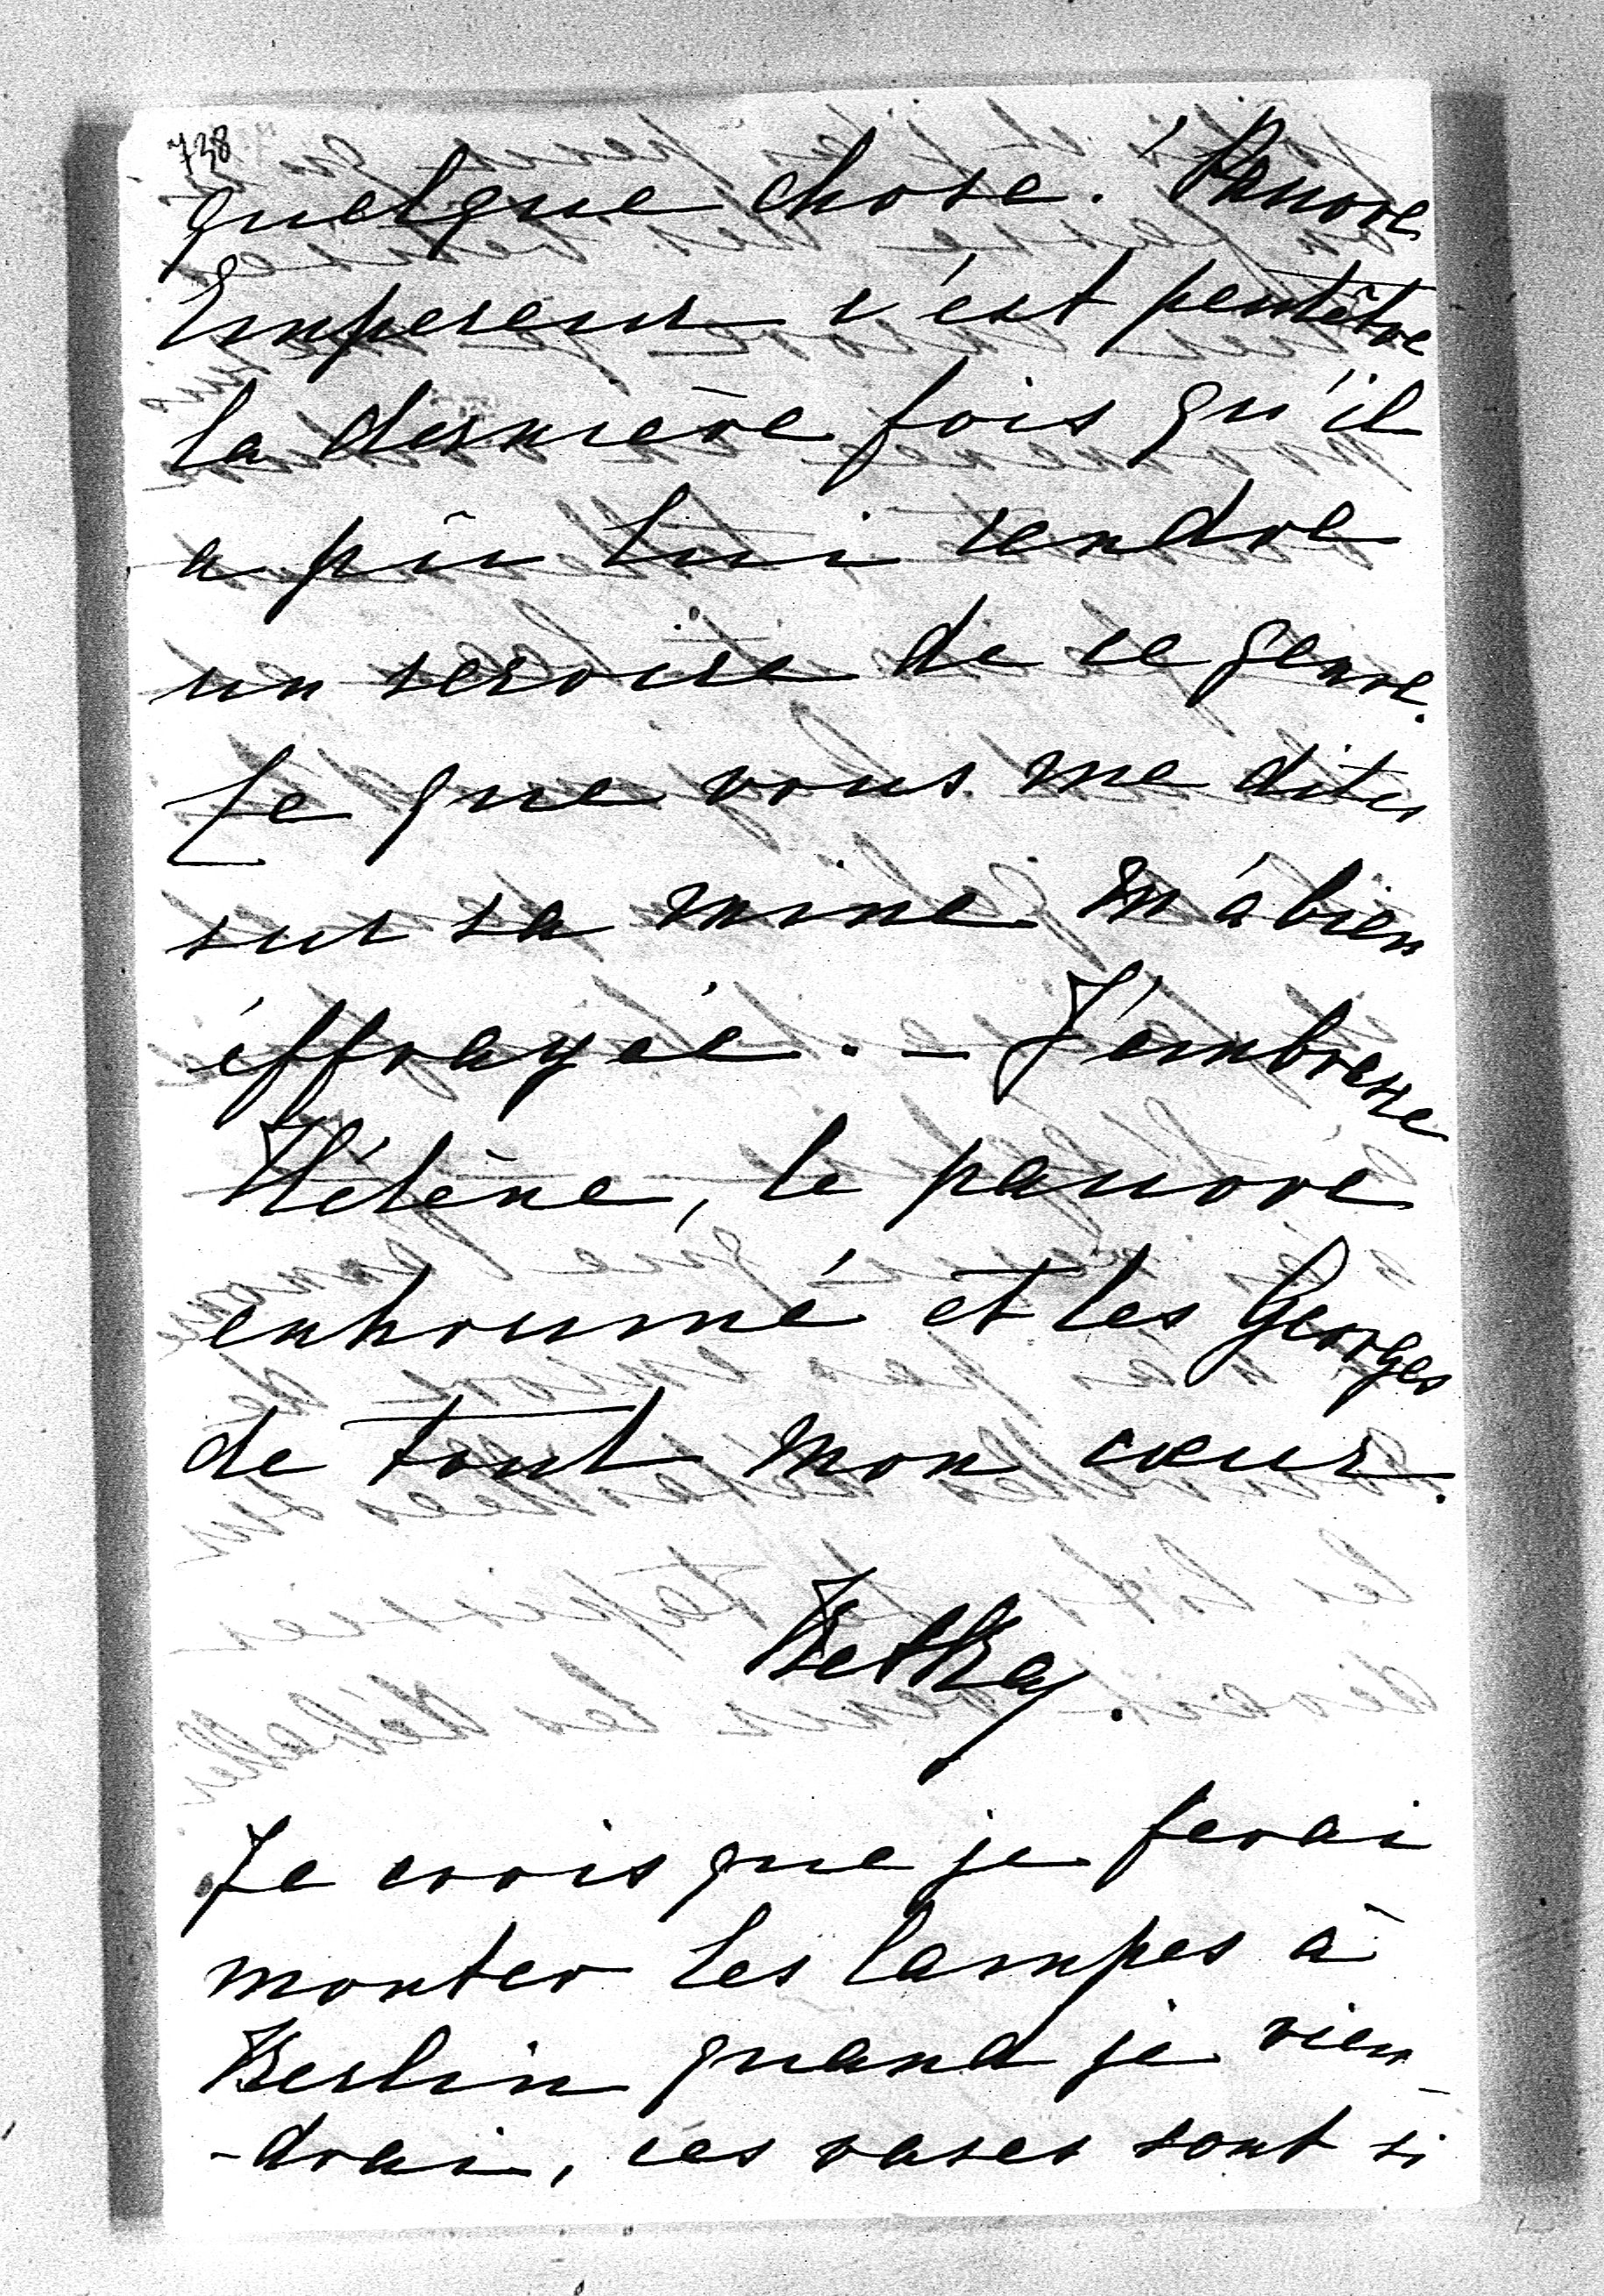 738
quelque chose. Pauvre
Empereur c'est peutêtre
la dernière fois qu'il
a pû lui rendre
un service de ce genre.
Ce que vous me dites
sur sa mine m'a bien
éffrayée. - J'embrasse
Hélène, le pauvre
enhoumé et les Georges
de tout mon cœur.
Betkay.
Je crois que je ferai
monter les lampes à
Berlin quand je vien-
-drai, ces vases sont si